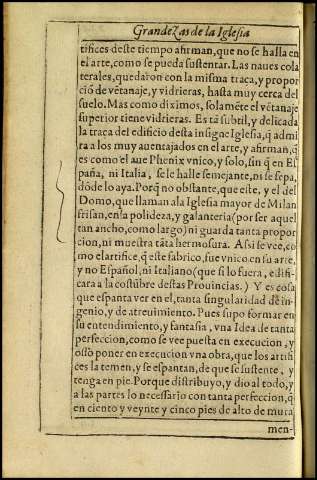 Grandezas de la Iglesia
tifices deste tiempo afirman, que no se halla en
el arte, como se pueda sustentar. Las naues cola
terales, quedaron con la misma traça, y propor
ció de vẽtanaje, y vidrieras, hasta muy cerca del
suelo. Mas como diximos, solamẽte el vẽtanaje
superior tiene vidrieras. Es tã subtil, y delicada
la traça del edificio desta insigne Iglesia, q̃ admi
ra a los muy auentajados en el arte, y afirman, q̃
es como el aue Phenix vnico, y solo, sin q̃ en Es
paña, ni Italia, se le halle semejante, ni se sepa,
dõde lo aya. Porq̃ no obstante, que este, y el del
Domo, que llaman ala Iglesia mayor de Milan
frisan, en la polideza, y galanteria (por ser aquel
tan ancho, como largo) ni guarda tanta propor
cion, ni muestra tãta hermosura. Assi se vee, co
mo el artifice, q̃ este fabrico, fue vnico en su arte,
y no Español, ni Italiano (que si lo fuera, edifi-
cara a la costũbre destas Prouincias.) Y es cosa
que espanta ver en el, tanta singularidad de in-
genio, y de atreuimiento. Pues supo formar en
su entendimiento, y fantasia, vna Idea de tanta
perfeccion, como se vee puesta en execucion, y
osso poner en execucion vna obra, que los artifi
ces la temen, y se espantan, de que se sustente, y
tenga en pie. Porque distribuyo, y dio al todo, y
a las partes lo necessario con tanta perfeccion, q̃
en ciento y veynte y cinco pies de alto de mura
men-